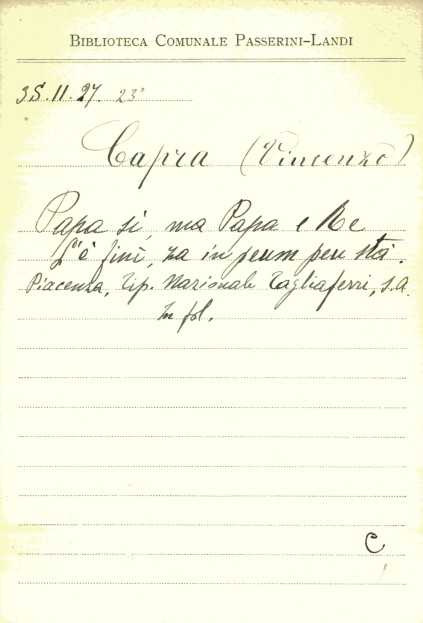 BIBLIOTECA COMUNALE PASSERINI-LANDI
3S.11.27. 23°
Capra (Vincenzo)
Papa si, ma Papa e Re
L'è finì, za in
Piacenza, Tip. Nazionale Tagliaferri, s.a.
In fol.
C